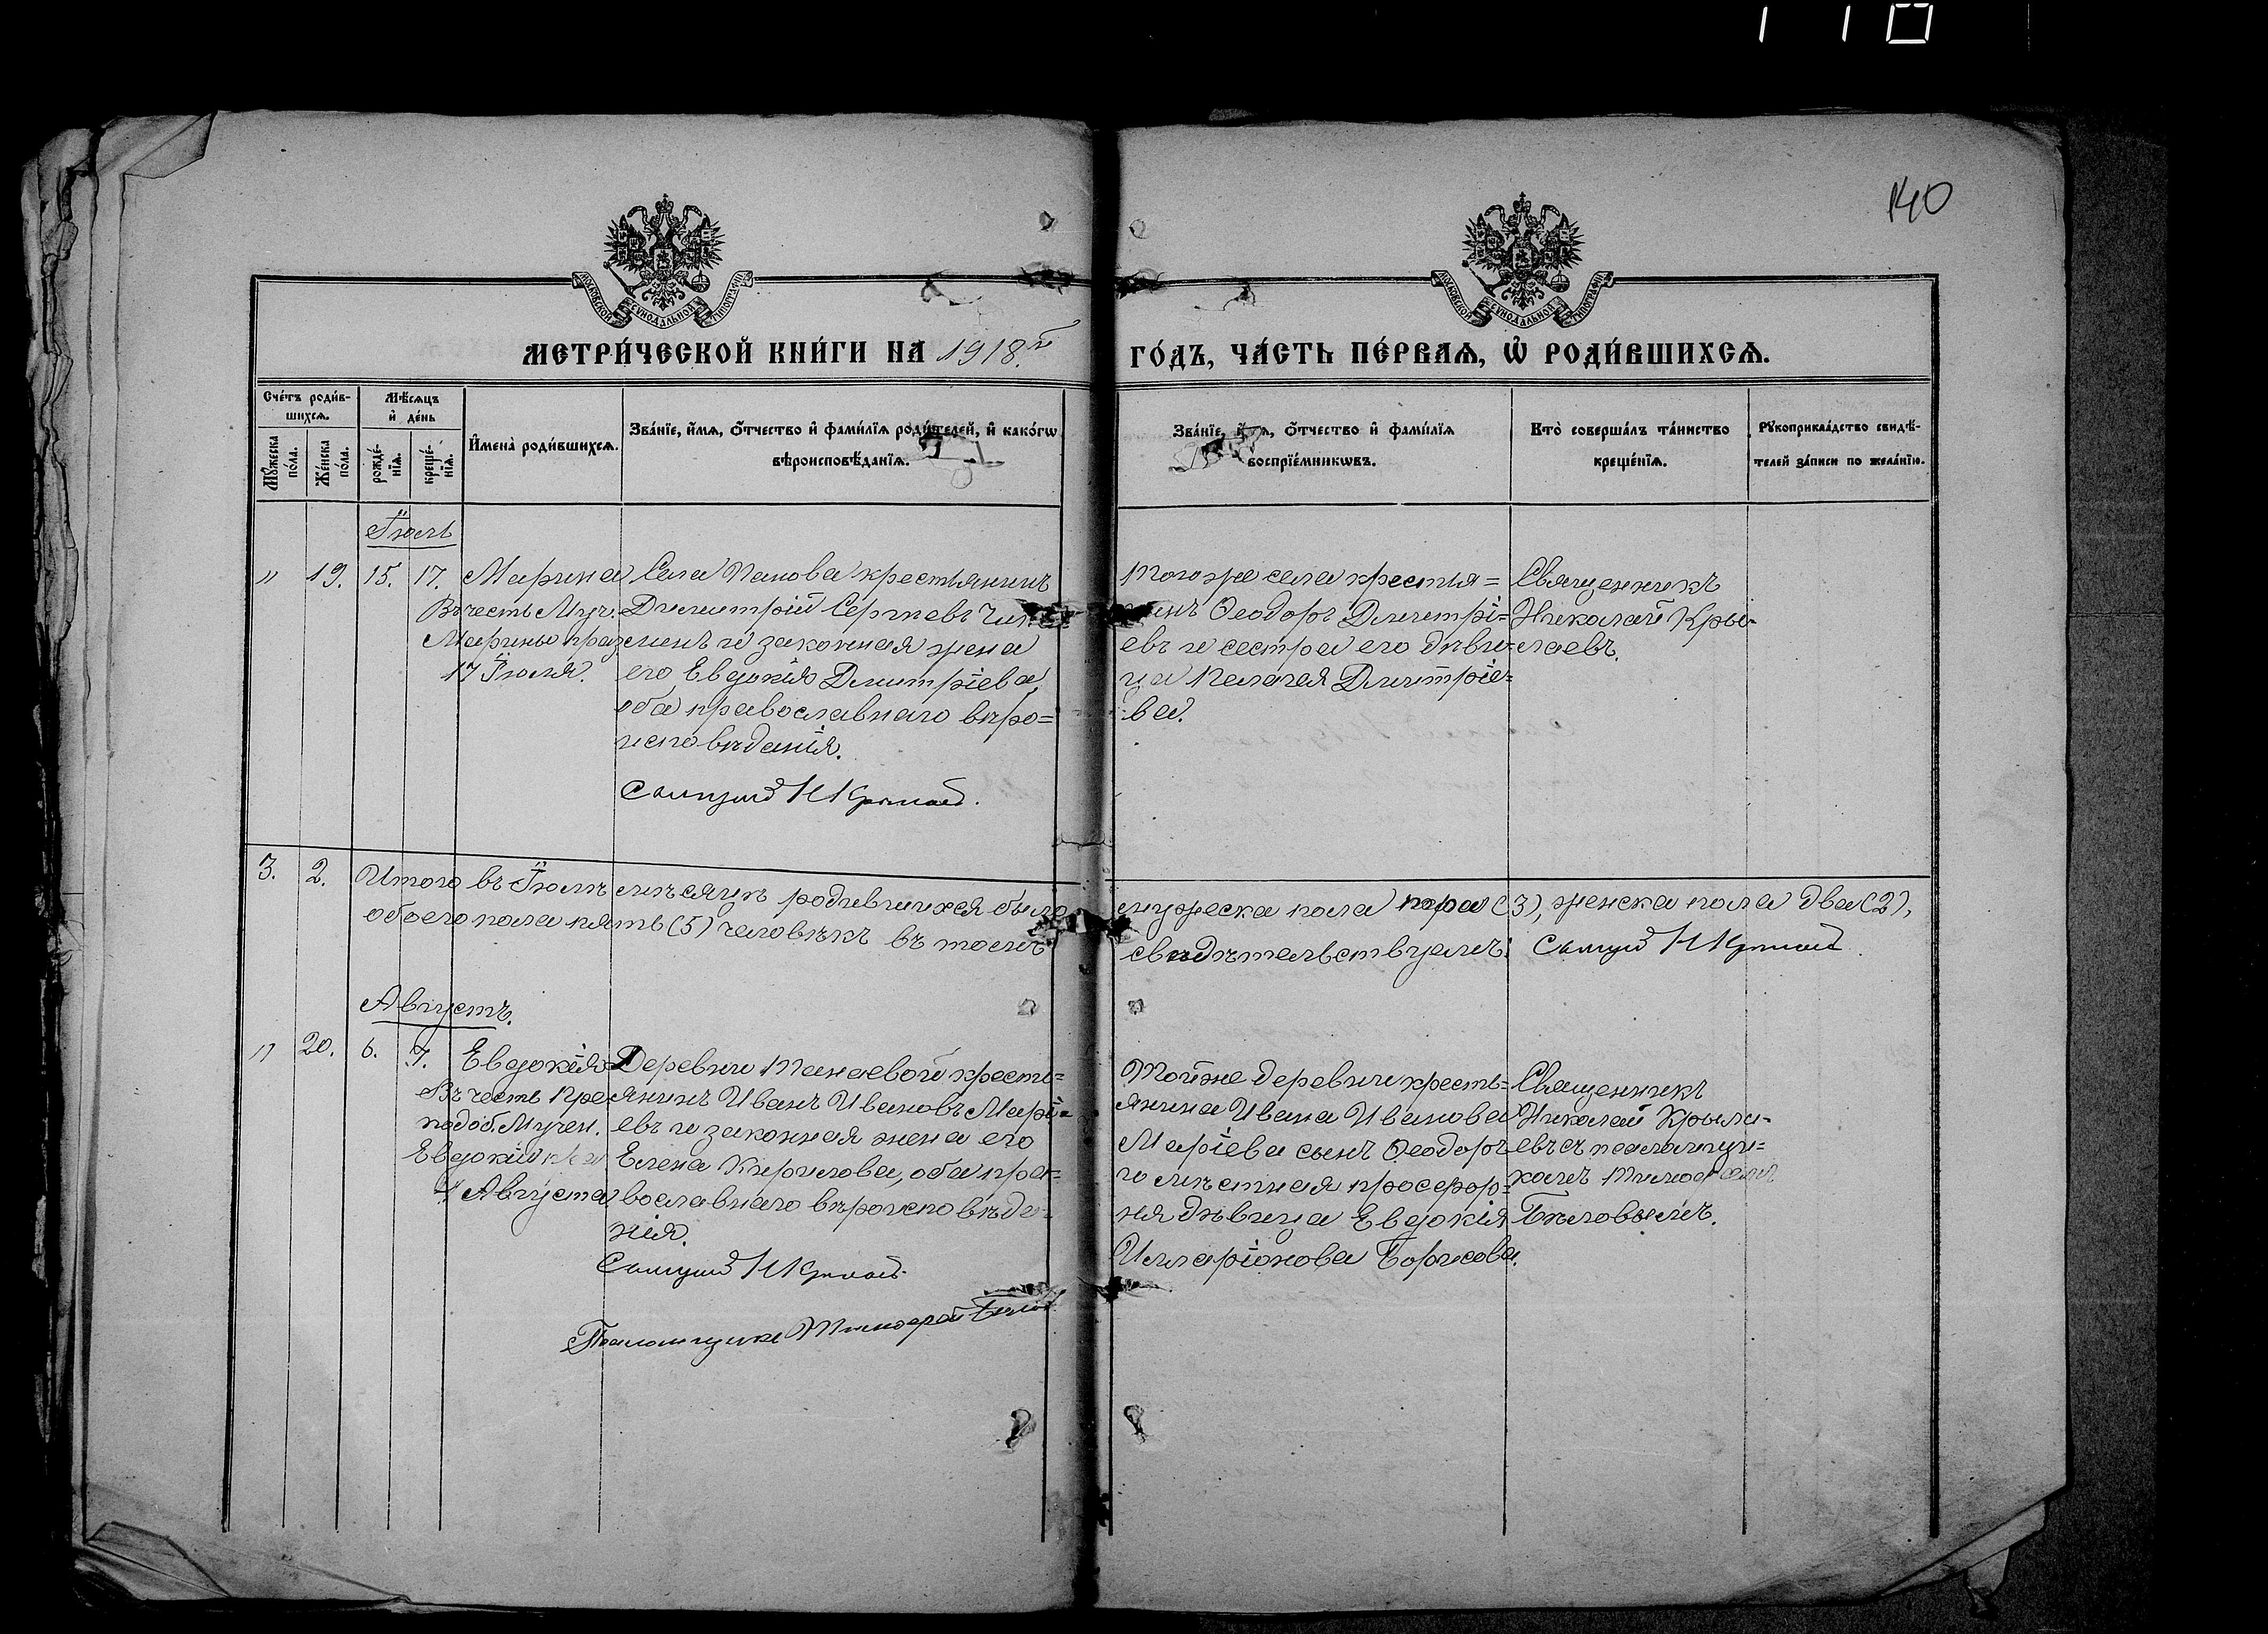 110
140
МОСКОВСКОЙ СѴНОДАЛЬНОЙ ТИПОГРАФІИ
МОСКОВСКОЙ СѴНОДАЛЬНОЙ ТИПОГРАФІИ
МЕТРИ́ЧЕСКОЙ КНИ́ГИ НА 1918.й ГО́ДЪ, ЧА́СТЬ ПЕ́РВАѦ, Ѽ РОДИ́ВШИХСѦ.
Сче́тъ роди́в-
шихсѧ.
Мꙋ́жеска
по́ла.
Же́нска
по́ла.
Мѣ́сѧцъ
и҆ де́нь
рожде́-
нїѧ.
креще́-
нїѧ.
И҆мена̀ роди́вшихсѧ.
Зва́нїе, и҆́мѧ, ѻ҆́тчество и҆ фами́лїѧ роди́телей, и҆ како́гѡ
вѣроисповѣ́данїѧ.
Зва́нїе, и҆́мѧ, ѻ҆́тчество и҆ фами́лїѧ
воспрїе́мникѡвъ.
Кто̀ соверша́лъ та́инство
креще́нїѧ.
Рꙋкоприкла́дство свидѣ́-
телей за́писи по жела́нїю.
Іюль
" 19. 15. 17. Марина
Въ честь Муч.
Марины праз
17 Іюля.
Села Панова крестьянинъ
Димитрій Сергѣевъ
и законная жена
его Евдокія Димитріева,
оба православнаго вѣро=
исповѣданія.
Священ. Н Крылаев.
Того же села крестья=
нинъ Ѳеодоръ Димитрі=
евъ и сестра его дѣви=
ца Пелагея Димитріе=
ва.
Священникъ
Николай Кры-
лаевъ.
3. 2. Итого въ Іюлѣ мѣсяцѣ родившихся было мужеска пола три (3), женска пола два (2),
обоего пола пять (5) человѣкъ въ томъ свидѣтельствуемъ: Священ. Н Крылаев.
Августъ.
" 20. 6. 7. Евдокія
Въ честь Пре
подоб. Мучен.
Евдокіи
Августа.
Деревни Танаевой кресть=
янинъ Иванъ Ивановъ Марі=
евъ и законная жена его
Елена Кирилова, оба пра=
вославнаго вѣроисповѣда=
нія.
Священ. Н Крылаев.
Псаломщикъ Тимофей
Той же деревни кресть=
янина Ивана Иванова
Маріева сынъ Ѳеодоръ
и мѣстная просфор=
ня дѣвица Евдокія
Илларіонова Борисова.
Священникъ
Николай Крыла-
евъ съ псаломщи=
комъ
Бѣловымъ.